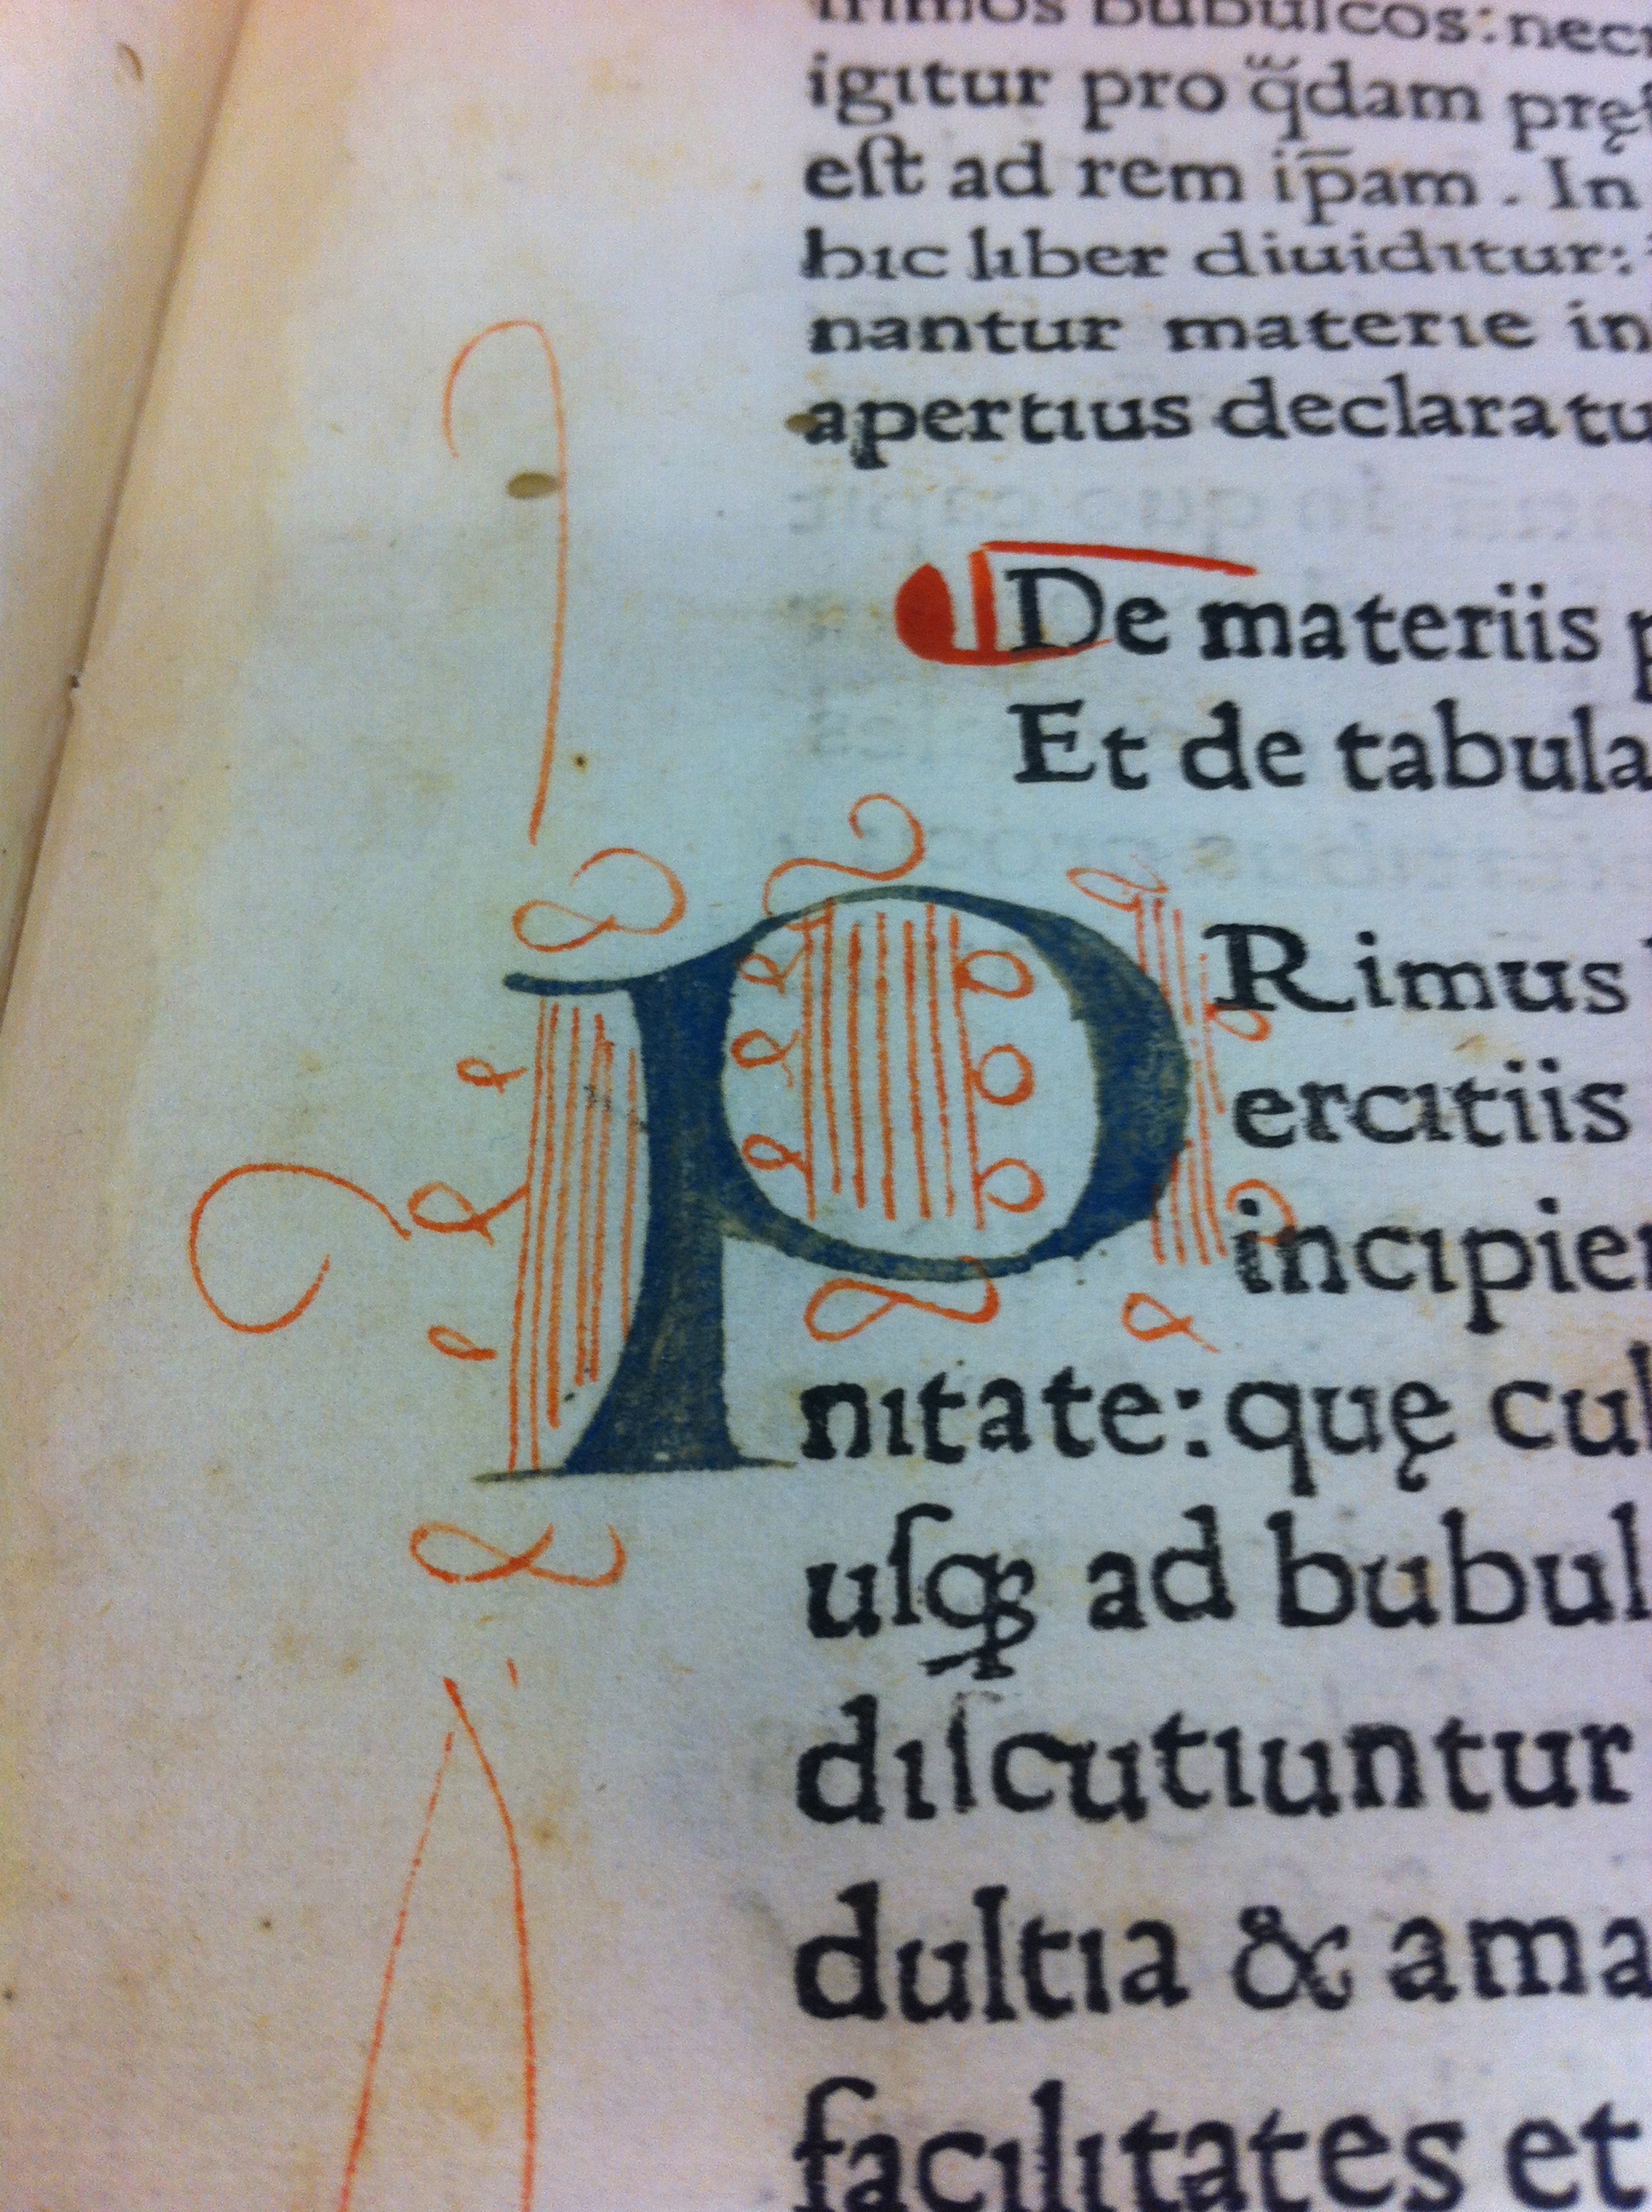 bubulcos: nec
igitur pro q̃dam
est ad rem ip̄am . In
hic liber diuiditur:
nantur materie in
apertius declaratu
¶ De materiis p
Et de tabula
PRimus
ercitiis
incipien
nitate: quę cul
uſqꝫ ad bubul
diſcutiuntur
dultia & ama
facilitates et